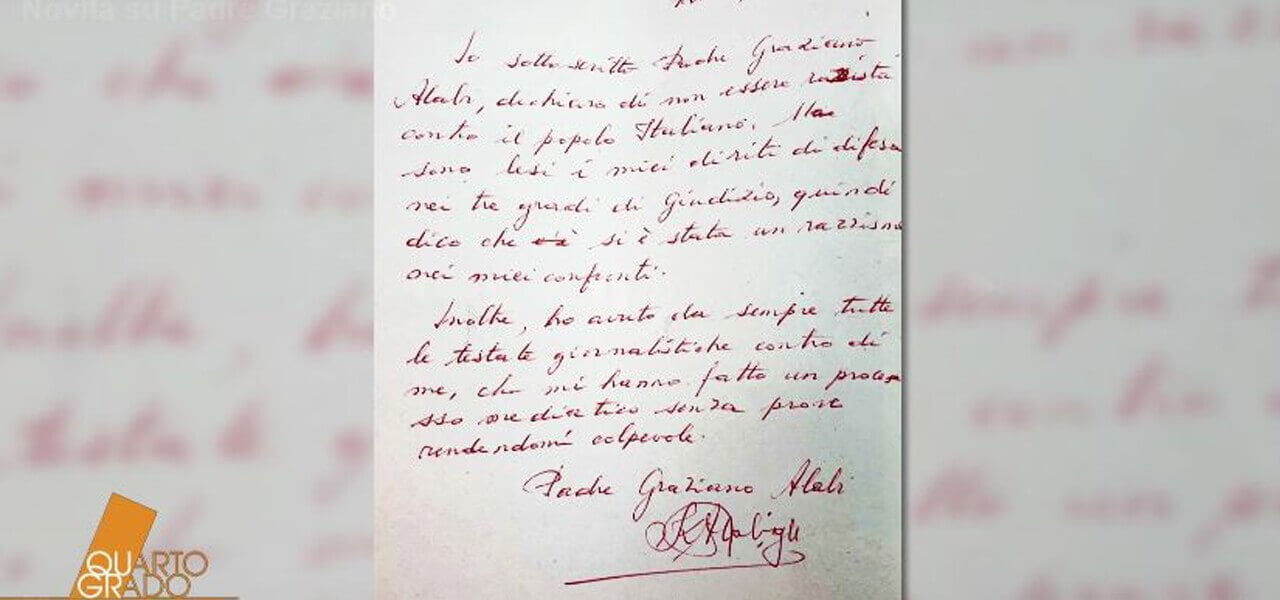 Novità su Padre Graziano
Io sottoscritto Padre Graziano
Alabi, dichiaro di non essere razzista
contro il popolo Italiano. Ma
sono lesi i miei diriti di difesa
nei tre gradi di Giudizio, quindi
dico che si è stata un razzismo
nei miei confronti.
Inoltre, ho avuto da sempre tutte
le testate giornalistiche contro di
me, che mi hanno fatto un proce
sso mediatico senza prove
rendendomi colpevole.
Padre Graziano Alabi
QUARTO
GRADO